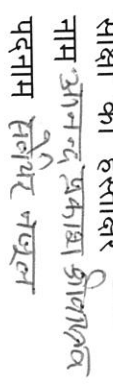 साक्षी का हस्ताक्षर
नाम आनन्द प्रकाश श्रीवास्तव
पदनाम